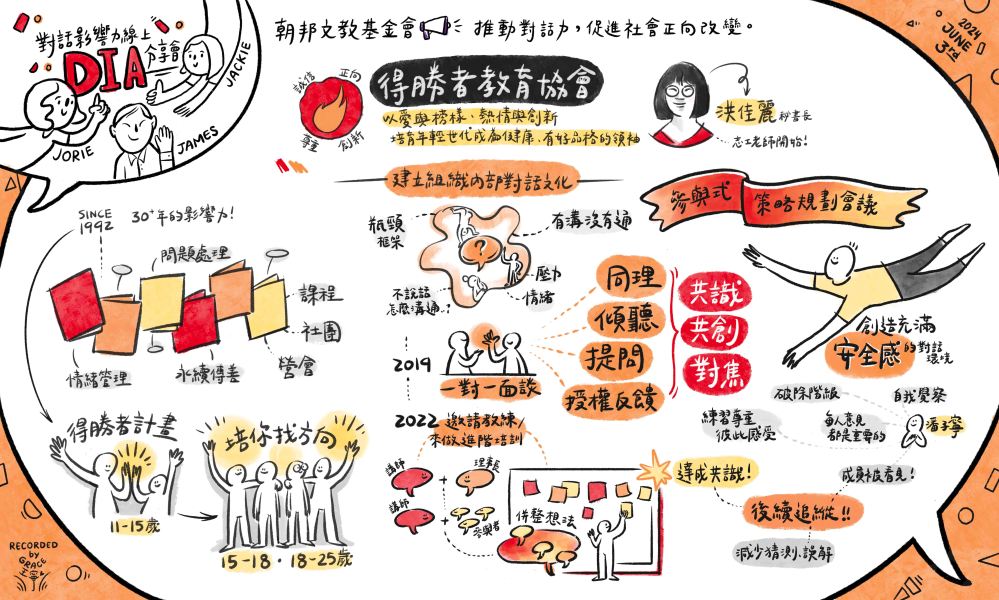 對話影響力線上
DIA
分享會
JACKIE
JORIE
JAMES
朝邦文教基金會 推動對話力，促進社會正向改變。
2024
JUNE
3rd
誠信
正向
尊重
創新
得勝者教育協會
以愛與榜樣、熱情與創新
培育年輕世代成為健康、有好品格的領袖
洪佳麗 秘書長
志工老師開始！
建立組織內部對話文化
SINCE
1992
30+年的影響力！
問題處理
課程
社團
營會
情緒管理
永續傳善
得勝者計畫
11-15歲
培你找方向
15-18・18-25歲
瓶頸
框架
有溝沒有通
?
壓力
情緒
不說話
怎麼溝通..?
2019
一對一面談
同理
傾聽
提問
授權反饋
共識
共創
對焦
2022 邀請教練/
來做進階培訓
講師
+
理事長
講師
+
參與者
併整想法
參與式
策略規劃會議
創造充滿
安全感的對話
環境
破除階級
自我覺察
練習尊重
彼此感受
每人意見
都是重要的
潘子寧
達成共識！
成員被看見！
後續追蹤!!
減少猜測、誤解
RECORDED
by
GRACE